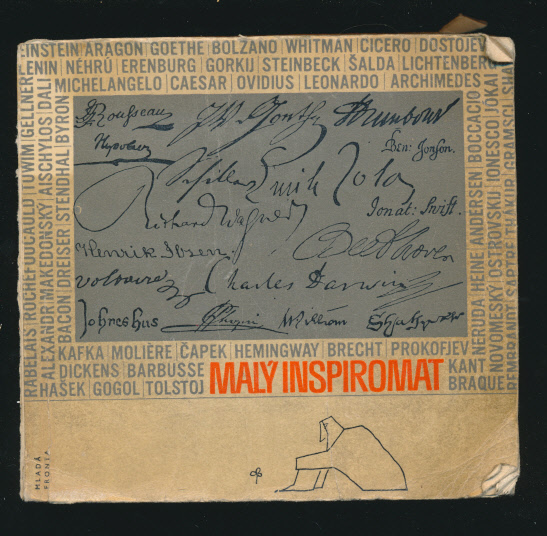 EINSTEIN ARAGON GOETHE BOLZANO WHITMAN CICERO DOSTOJEV
LENIN NÉHRÚ ERENBURG GORKIJ STEINBECK ŠALDA LICHTENBERG
MICHELANGELO CAESAR OVIDIUS LEONARDO ARCHIMEDES
RABELAIS ROCHEFOUCAULD TUWIM GELLNER
ALEXANDR MAKEDONSKÝ AISCHYLOS DALI
BACON DREISER STENDHAL BYRON
Rousseau
J W v Goethe
Napoleon
Ben: Jonson.
Schiller
Emile Zola
Richard Wagner
Jonat: Swift.
Henrik Ibsen.
Beethoven
Voltaire
Charles Darwin
Johnes hus
Chopin
William Shakspere
NERUDA HEINE ANDERSEN BOCCACCIO
NOVOMESKÝ OSTROVSKIJ IONESCO JÓKAI
REMBRANDT SARTRE THÁKUR GRAMSCI SHA
KAFKA MOLIÈRE ČAPEK HEMINGWAY BRECHT PROKOFJEV
DICKENS BARBUSSE
HAŠEK GOGOL TOLSTOJ
MALÝ INSPIROMAT
KANT
BRAQUE
MLADÁ
FRONTA